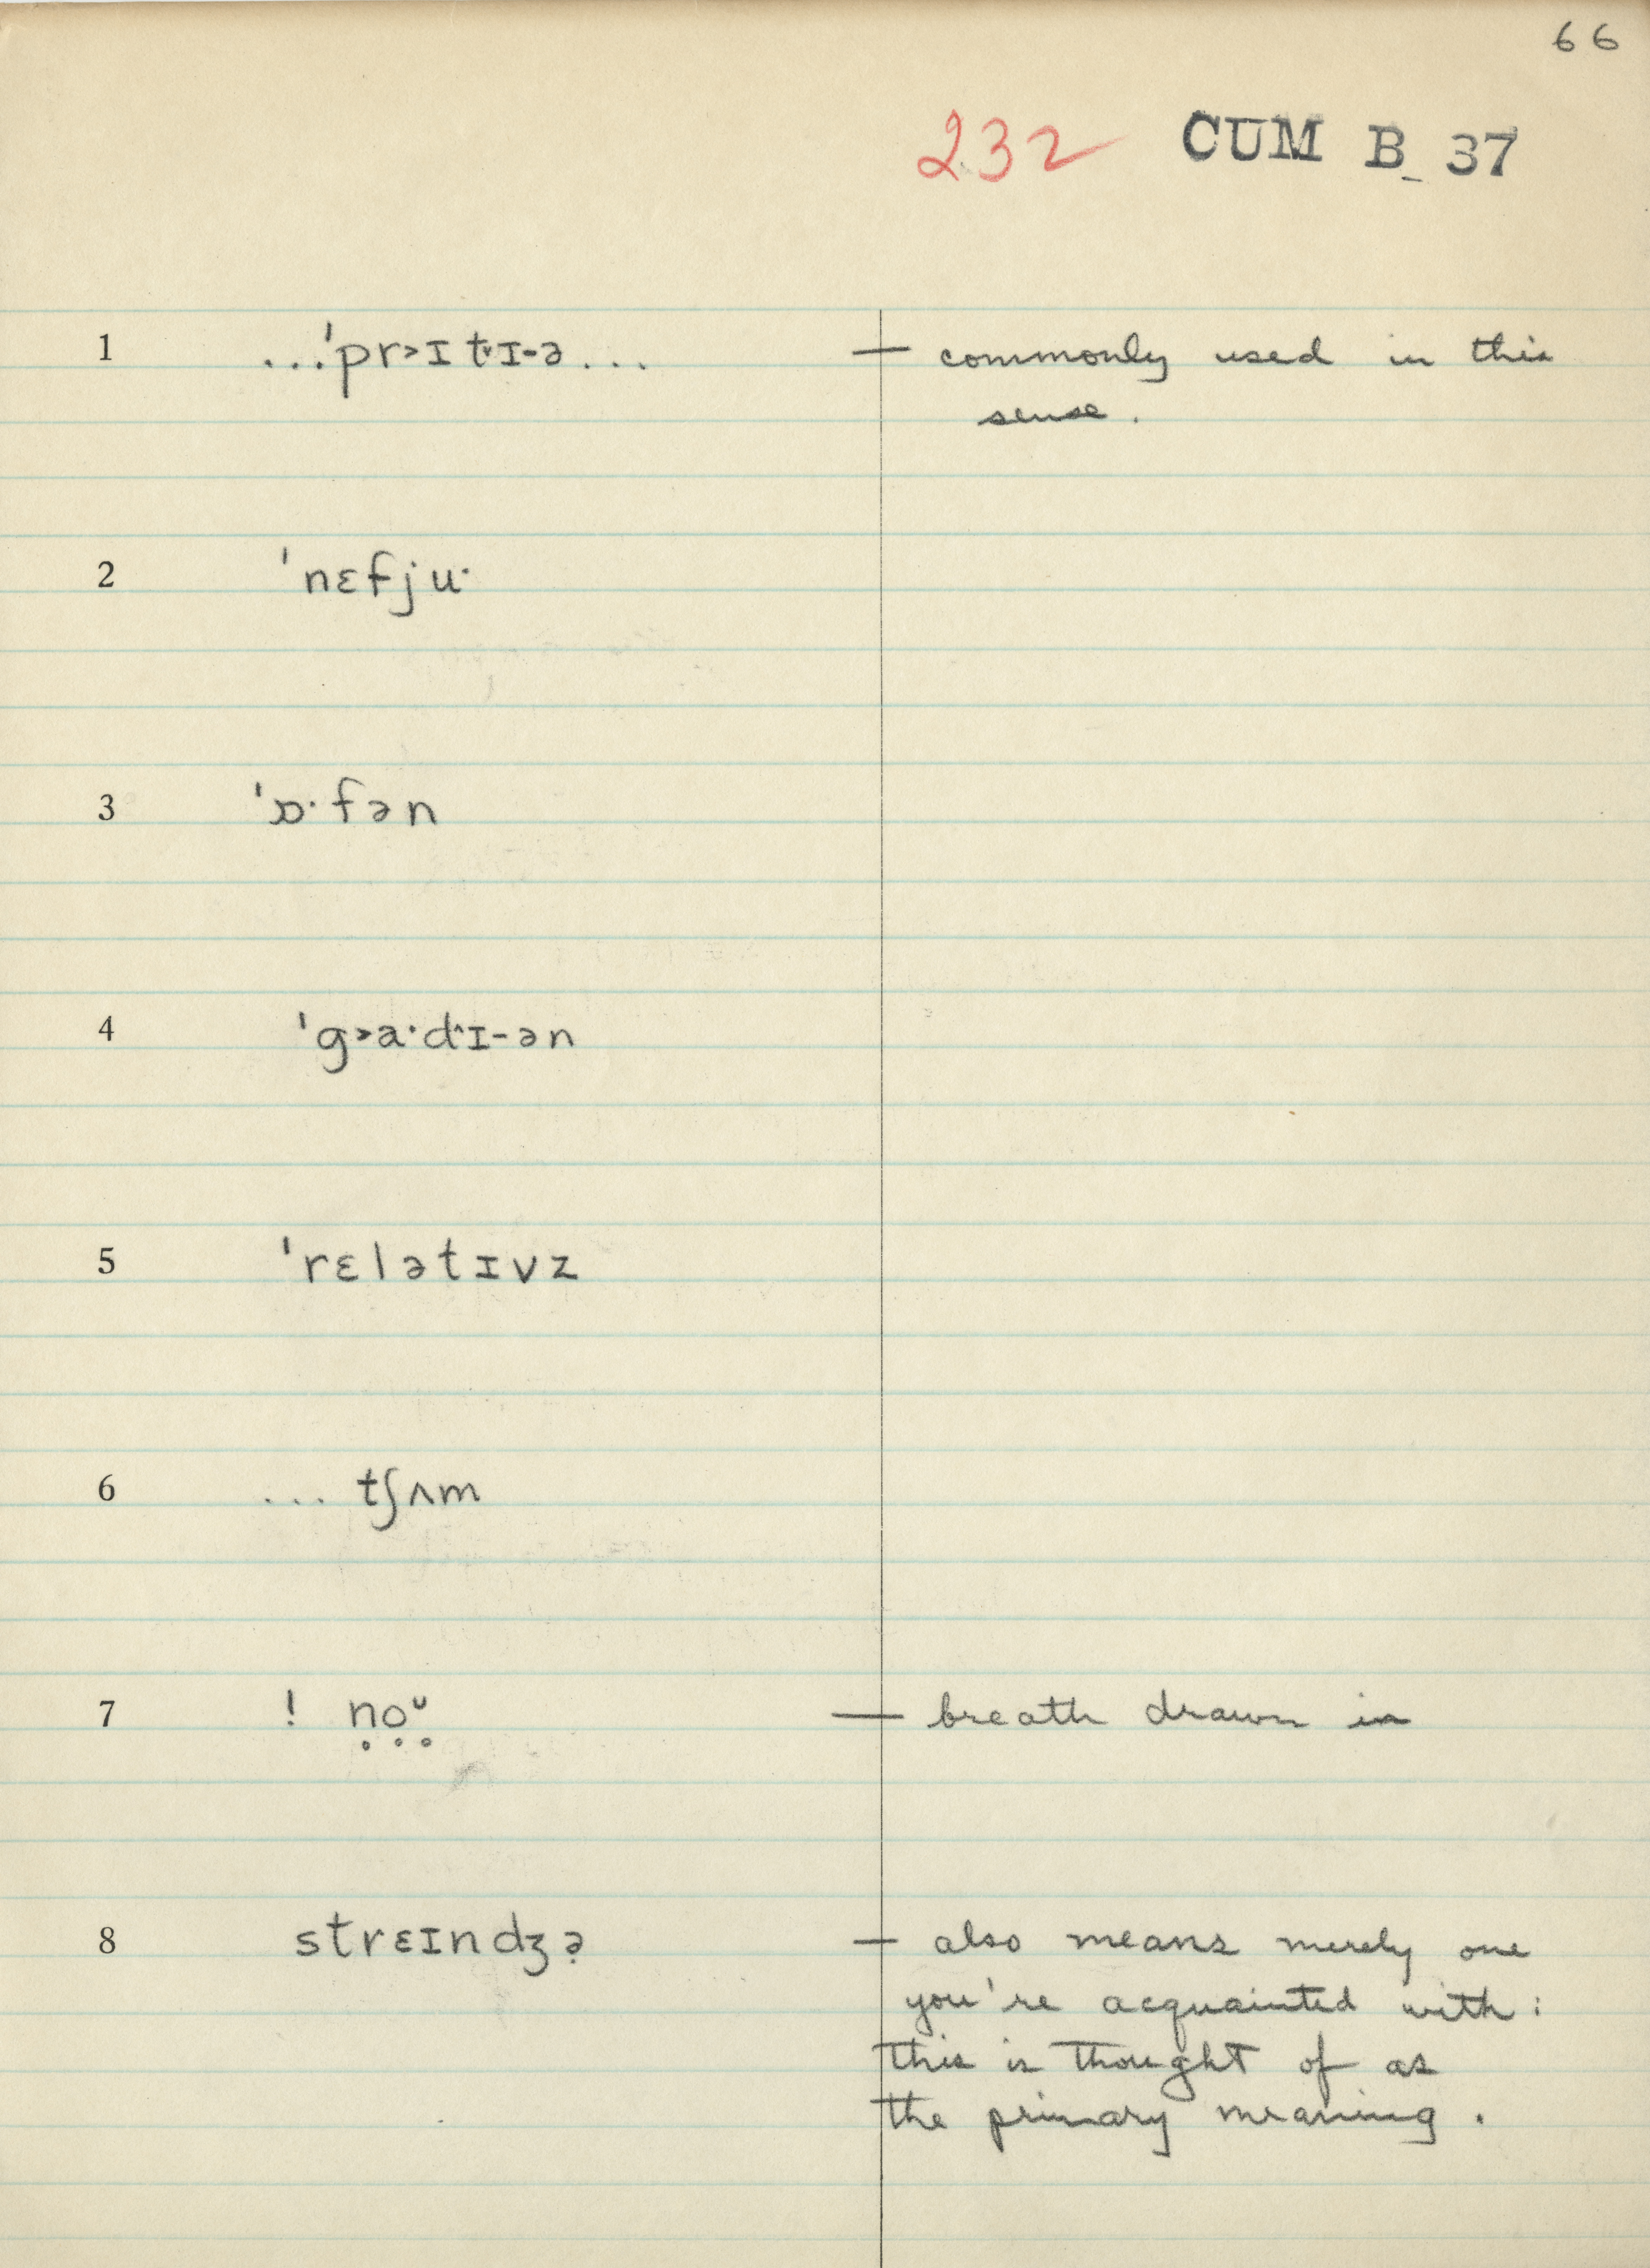 66
232 CUM B 37
1 ...ˈpr˃ɪt˅ɪ-ə... — commonly used in this
sense.
2 ˈnɛfju·
3 ˈɒ·fən
4 ˈg˃a·d˄ɪ-ən
5 ˈrɛlətɪvz
6 ... tʃʌm
7 ! n̥o̥ᶷ̥ — breath drawn in
8 strɛɪndʒə̣ — also means merely one
you're acquainted with:
this is thought of as
the primary meaning.